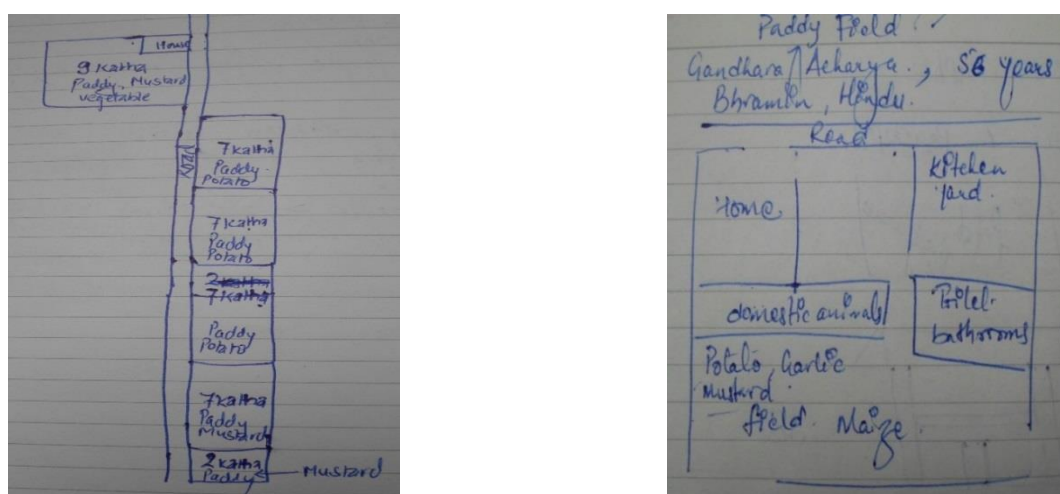 House
9 Katha
Paddy, Mustard
vegetable
7 katha
Paddy
Potato
7 katha
Paddy
Potato
2 katha
7 katha
Paddy
Potato
7 katha
Paddy
Mustard
2 katha
Paddy
Mustard
Paddy Field
Gandhara Acharya, 56 years
Bhramin, Hindu.
Road
Home
Kitchen
yard.
domestic animals
Toilet
bathrooms
Potato, Garlic
Mustard
field. Maize